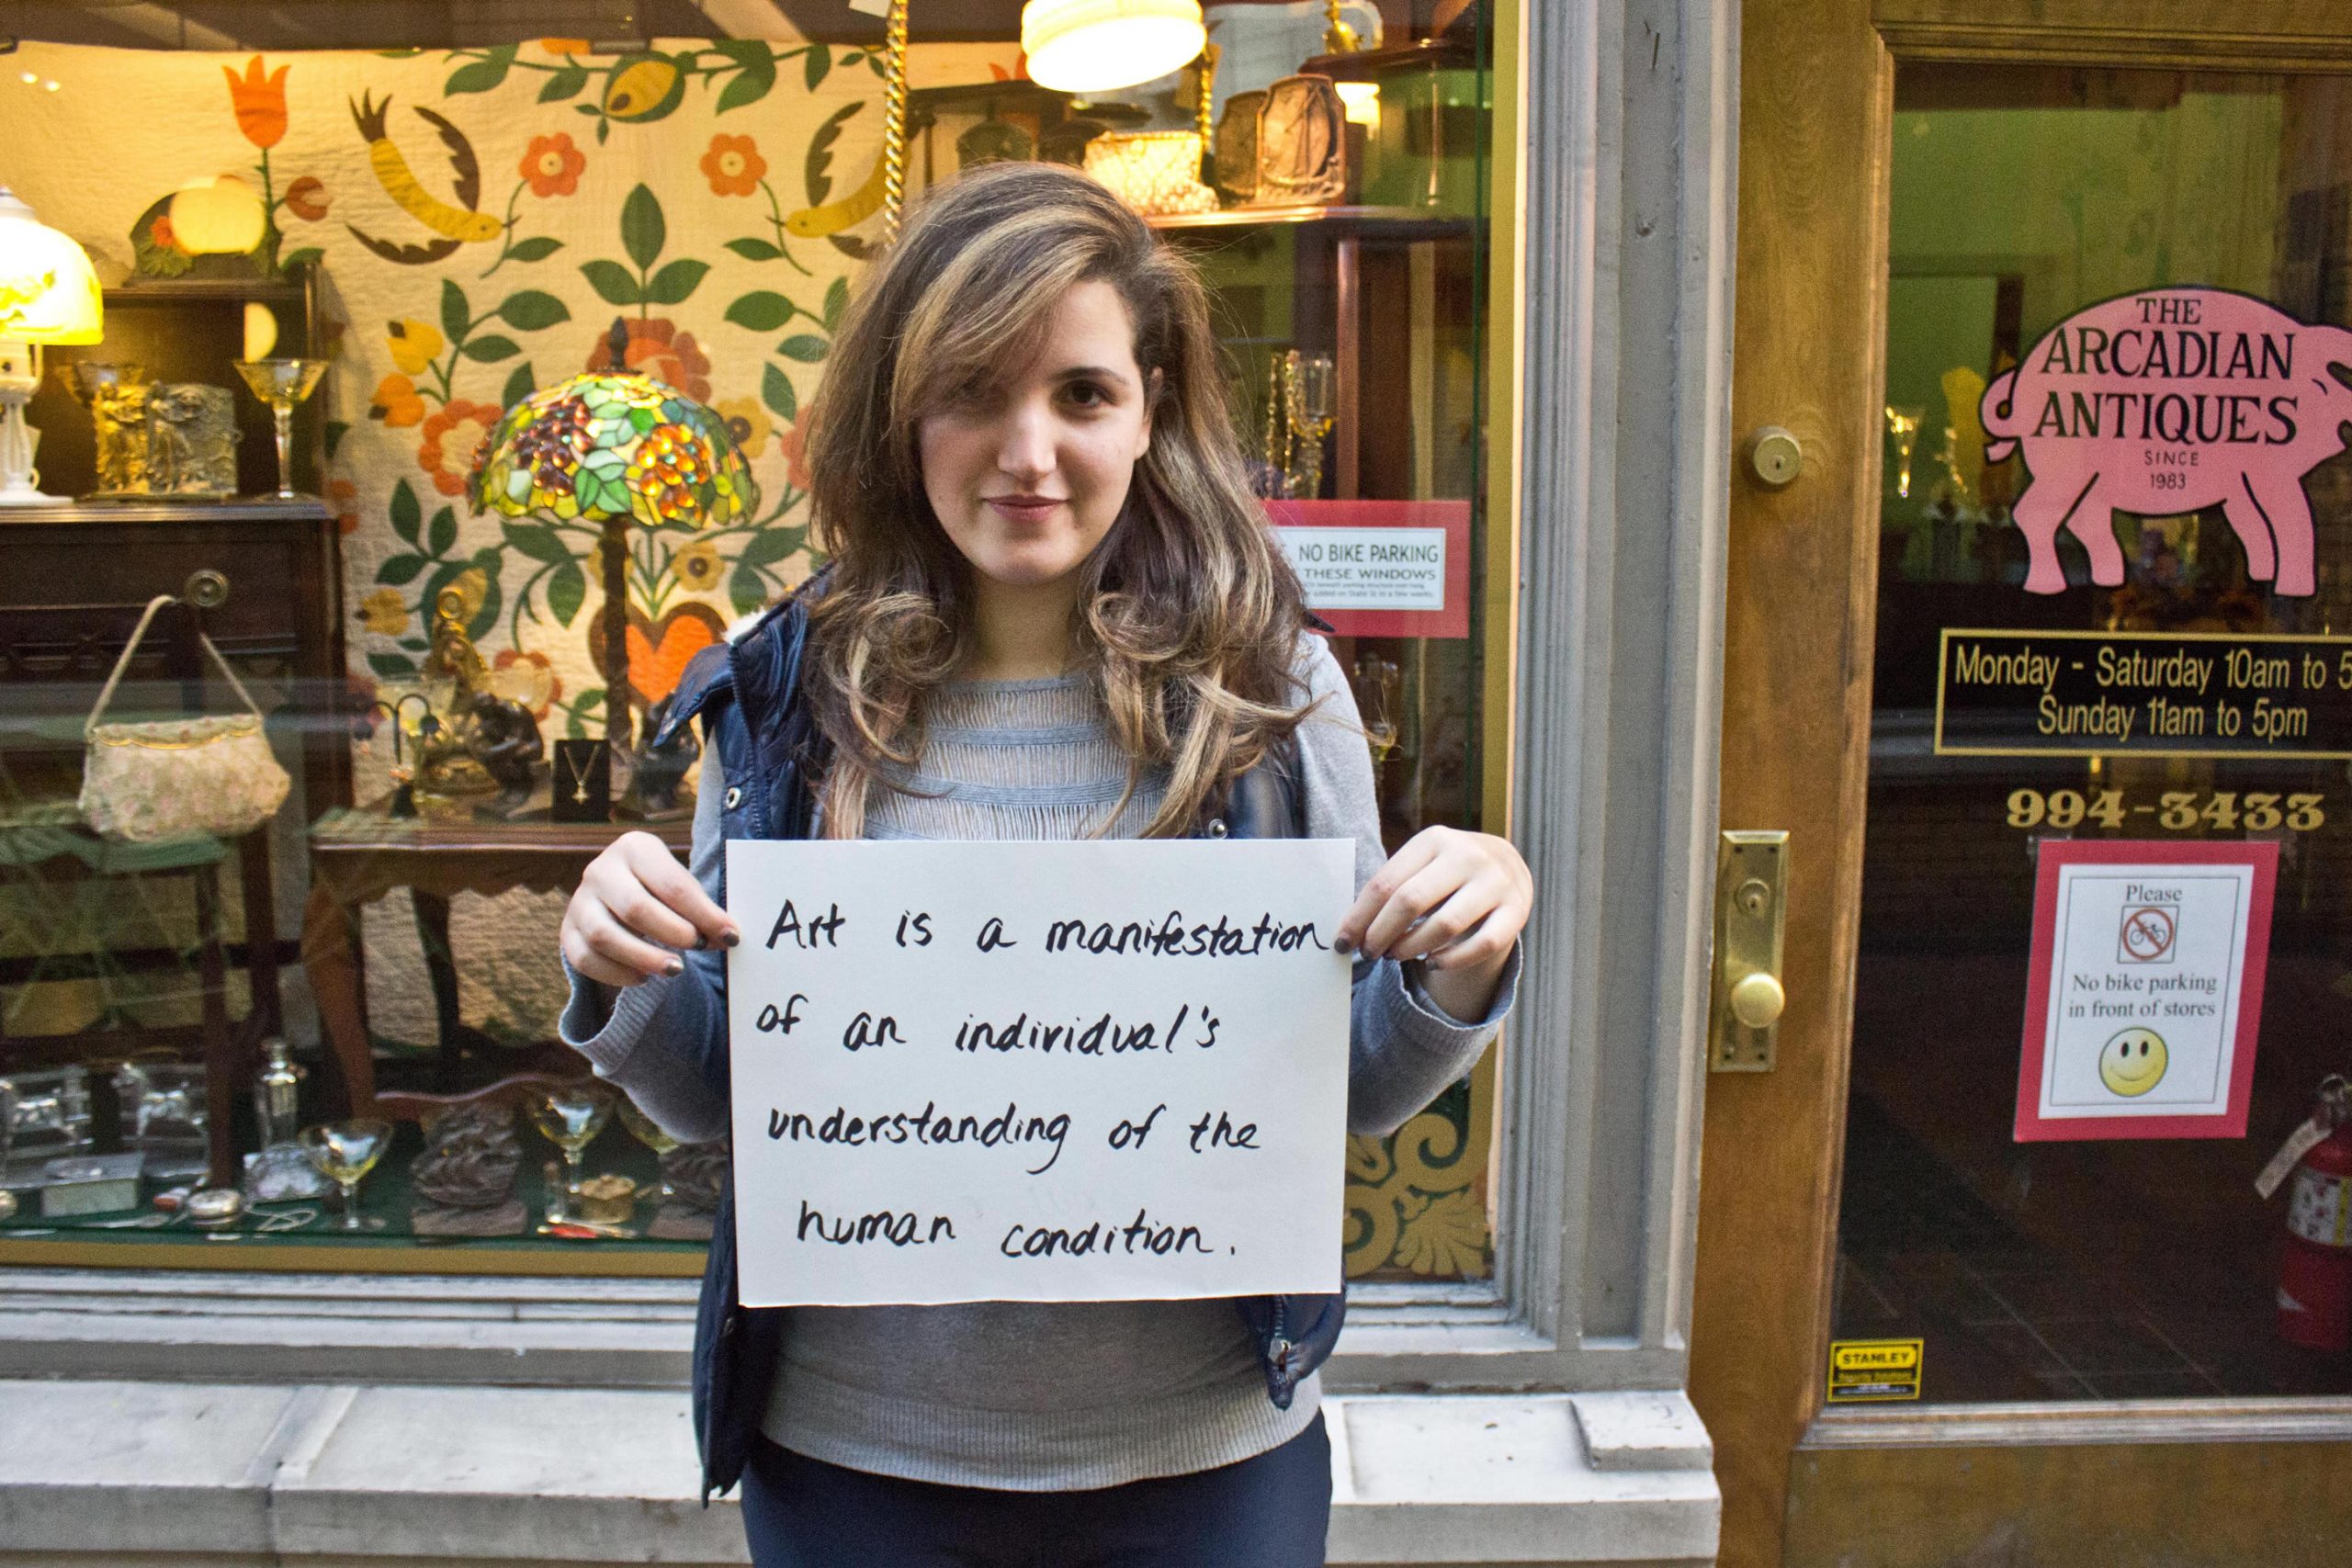 Art is a manifestation
of an individual's
understanding of the
human condition.
NO BIKE PARKING
THESE WINDOWS
THE
ARCADIAN
ANTIQUES
SINCE
1983
Monday - Saturday 10am to 5
Sunday 11am to 5pm
994-3433
Please
No bike parking
in front of stores
STANLEY